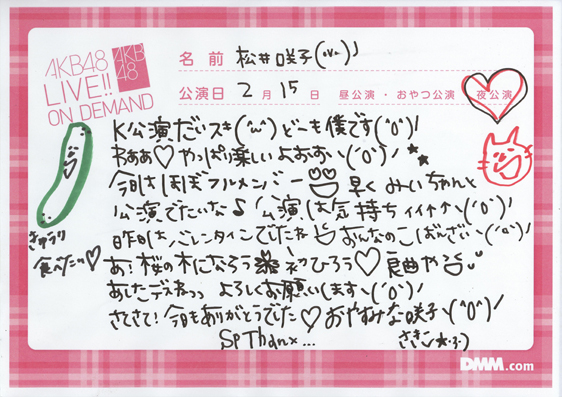 AKB48
LIVE!!
ON DEMAND
AKB
48
名前 松井咲子(
公演日 2月15日 昼公演・おやつ公演・夜公演
K公演だいスキ(^ω^)どーも僕です\(^o^)/
わぁぁ♡やっぱり楽しいよおおヽ(^o^)ノ★★
今日はほぼフルメンバー 早くみぃちゃんと
公演でたいな♪公演は気持ちイイ↑↑ヽ(^o^)ノ
昨日はバレンタインでしたね おんなのこばんざいヽ(^o^)ノ
あ!桜の木になろう 初ひろう♡ 良曲や
あしたデスねっっ よろしくお願いしますヽ(^o^)ノ
さてさて!今日もありがとうでした♡おやみな咲子ヽ(^o^)ノ
SpThanx...
さきこ
きゅうり
食べたい♡
DMM.com